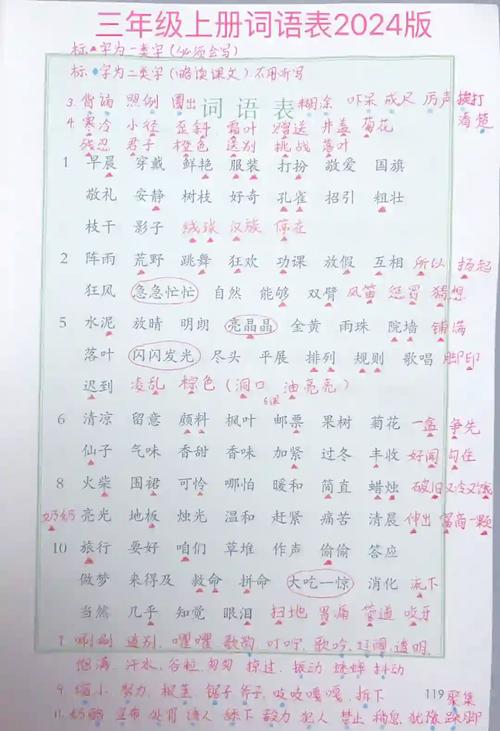 三年级上册词语表2024版
标▲字为一类字(必须会写)
标●字为二类字(略读课文)不用听写
3. 背诵 照例 圈出 糊涂 吓呆 成尺 厉声 挨打
词语表
4. 寒冷 小径 歪斜 霜叶 赠送 井盖 菊花 清楚
残忍 君子 橙色 送别 挑战 落叶
1 早晨 穿戴 鲜艳 服装 打扮 敬爱 国旗
敬礼 安静 树枝 好奇 孔雀 招引 粗壮
枝干 影子 绒球 汉族 停在
2 阵雨 荒野 跳舞 狂欢 功课 放假 互相 所以 扬起
狂风 急急忙忙 自然 能够 双臂 风笛 惩罚 猜想
5 水泥 放晴 明朗 亮晶晶 金黄 雨珠 院墙 铺满
落叶 闪闪发光 尽头 平展 排列 规则 歌唱 脚印
迟到 凌乱 棕色 (洞口 油亮亮)
6 清凉 留意 颜料 枫叶 邮票 果树 菊花 一盒 争先
仙子 气味 香甜 香味 加紧 过冬 丰收 好闻 勾住
8 火柴 围裙 可怜 哪怕 暖和 简直 蜡烛 破旧 又冷又饿
奶奶 亮光 地板 烛光 温和 赶紧 痛苦 清晨 伸出 富商 一颗
10 旅行 要好 咱们 草堆 作声 偷偷 答应
做梦 来得及 救命 拼命 大吃一惊 消化 流下
当然 几乎 知觉 眼泪 扫地 胃痛 管道 咬牙
7. 唰唰 道别 嚯嚯 歌韵 叮咛 歌吟 辽阔 透明
饱满 汗水 谷粒 匆匆 掠过 振动 蟋蟀 抖动
9. 缩小 努力 锯子 斧子 吱吱嘎嘎 拆下
119 聚集
11. 奶酪 宣布 处罚 诱人 舔下 犯人 禁止 稍息 犹豫 跺脚